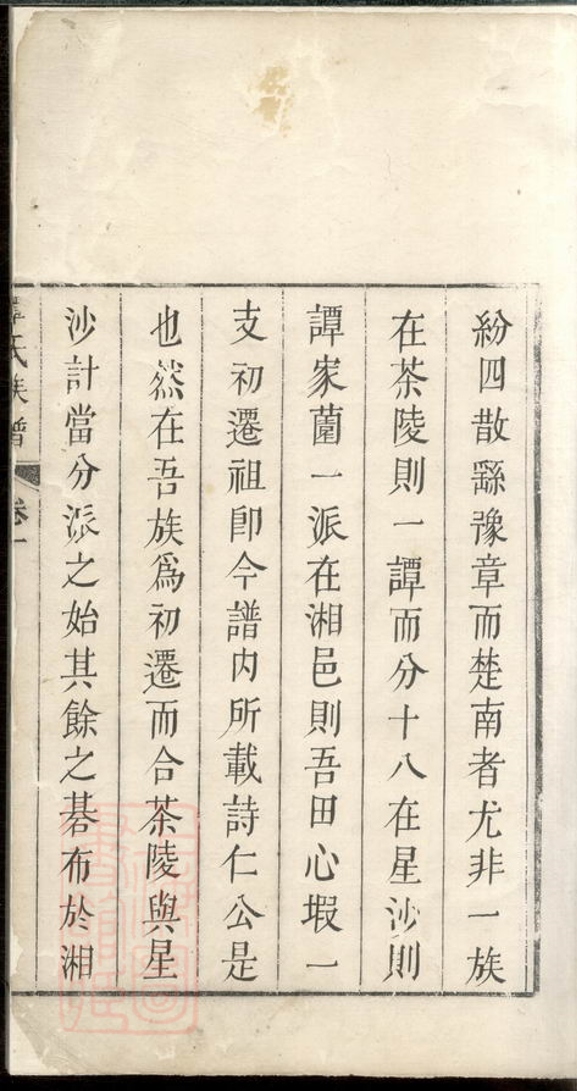 紛四散繇豫章而楚南者尤非一族
在茶陵則一譚而分十八在星沙則
譚家薗一派在湘邑則吾田心塅一
支初遷祖卽今譜内所載詩仁公是
也然在吾族爲初遷而合茶陵與星
沙計當分派之始其餘之碁布於湘
氏族譜
卷一